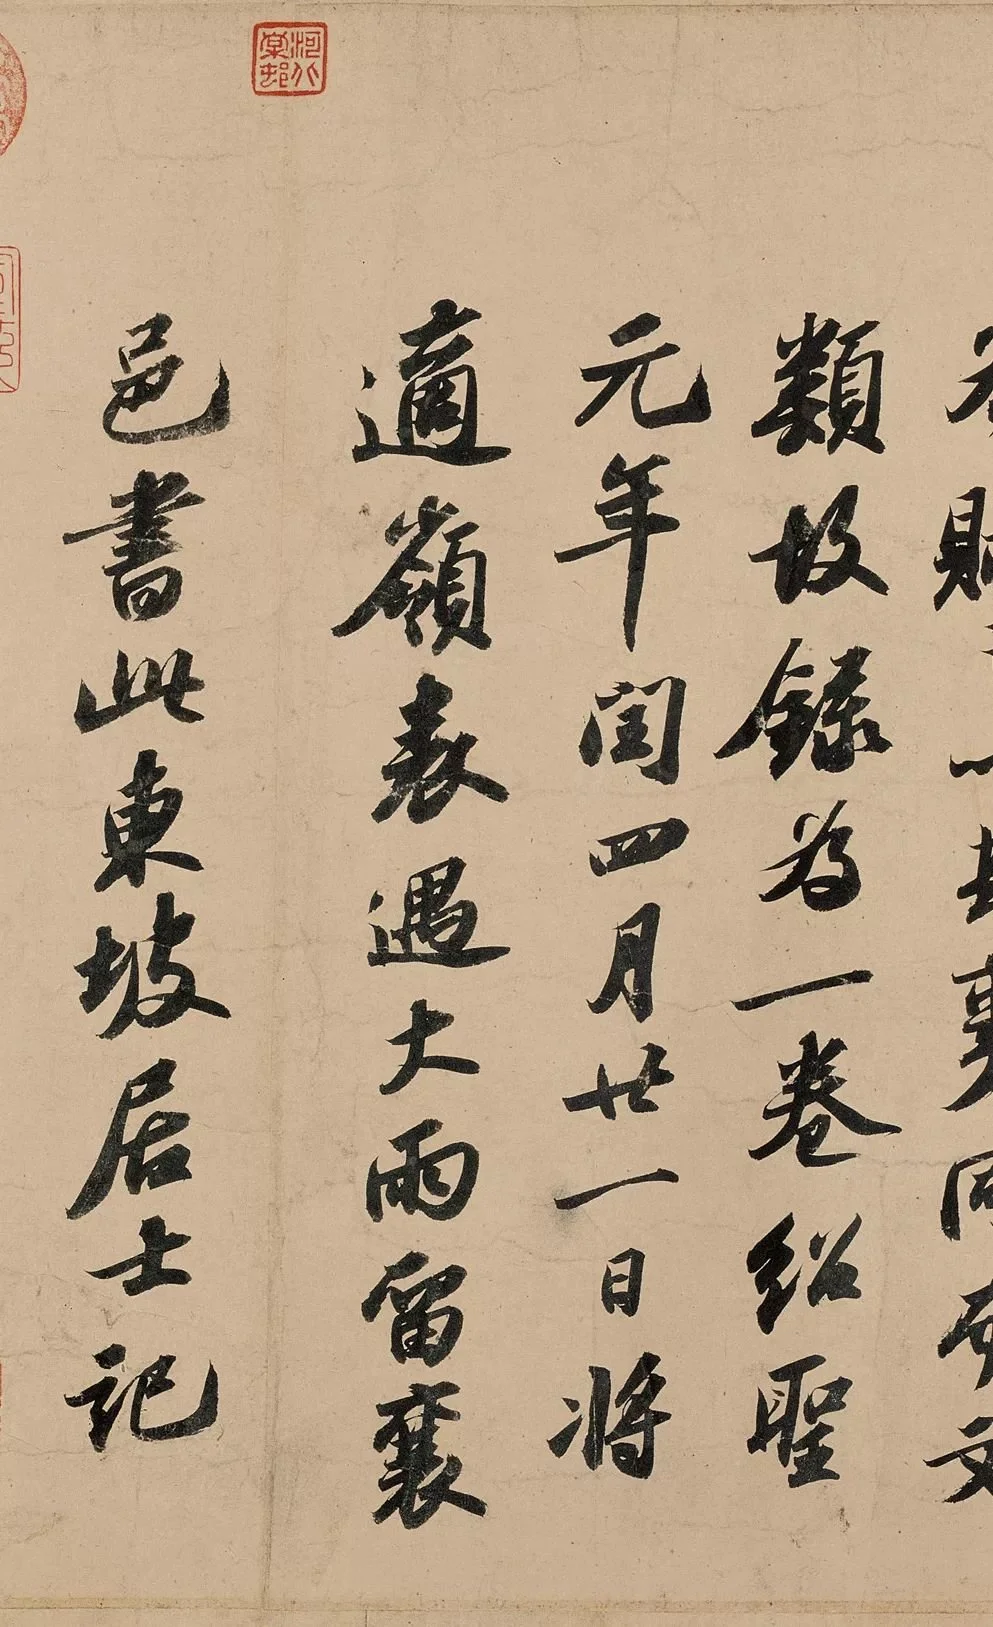 類故錄為一卷紹聖
元年閏四月廿一日將
適嶺表遇大雨留襄
邑書此東坡居士記
河北棠邨